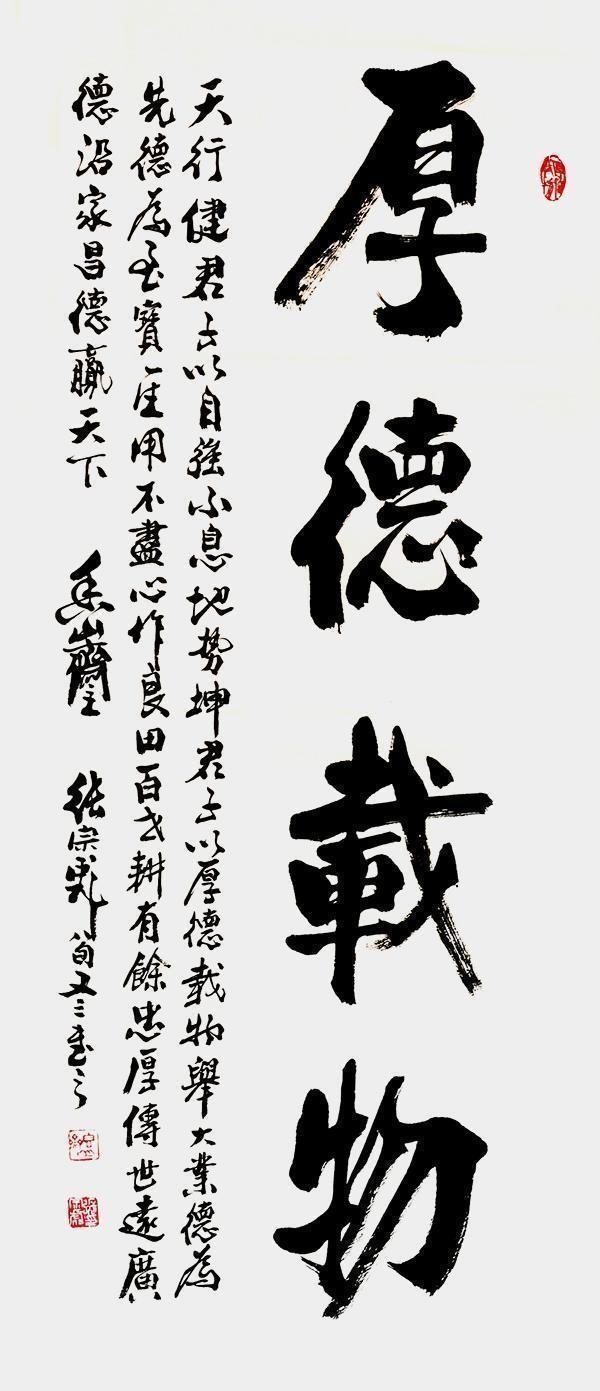 厚德載物
天行健君子以自强不息地势坤君子以厚德載物舉大業德為
先德為至寶一生用不盡心作良田百世耕有餘忠厚傳世遠廣
德沿家昌德贏天下 香山齋 張宗彪